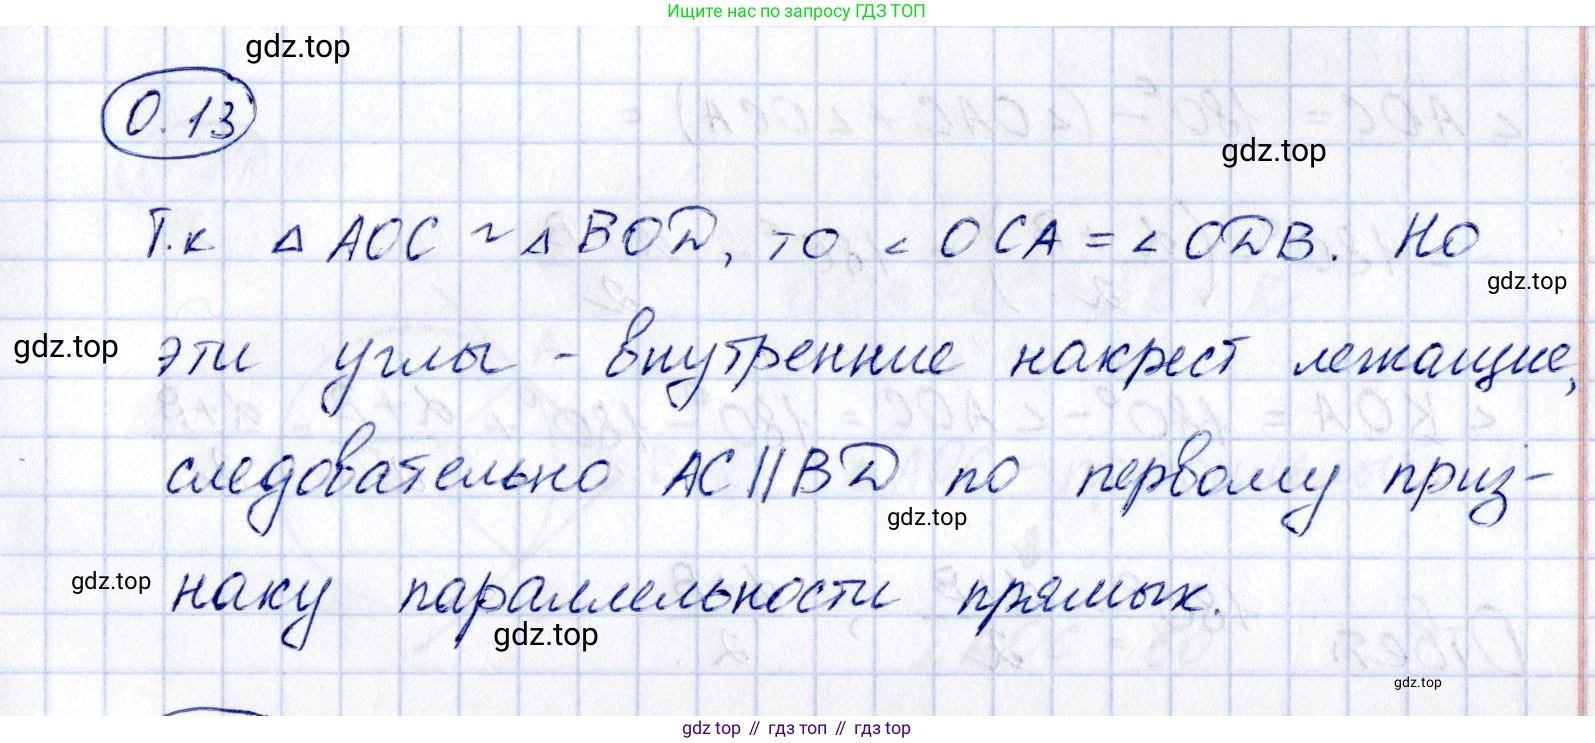 Ищите нас по запросу ГДЗ ТОП
gdz.top
0.13
gdz.top
Т.к. △ AOC ~ △ BOD, то ∠ OCA = ∠ ODB. Но
gdz.top
gdz.top
эти углы - внутренние накрест лежащие,
следовательно AC||BD по первому приз-
gdz.top
gdz.top
наку параллельности прямых.
gdz.top
gdz.top
gdz top // гдз топ // гдз top